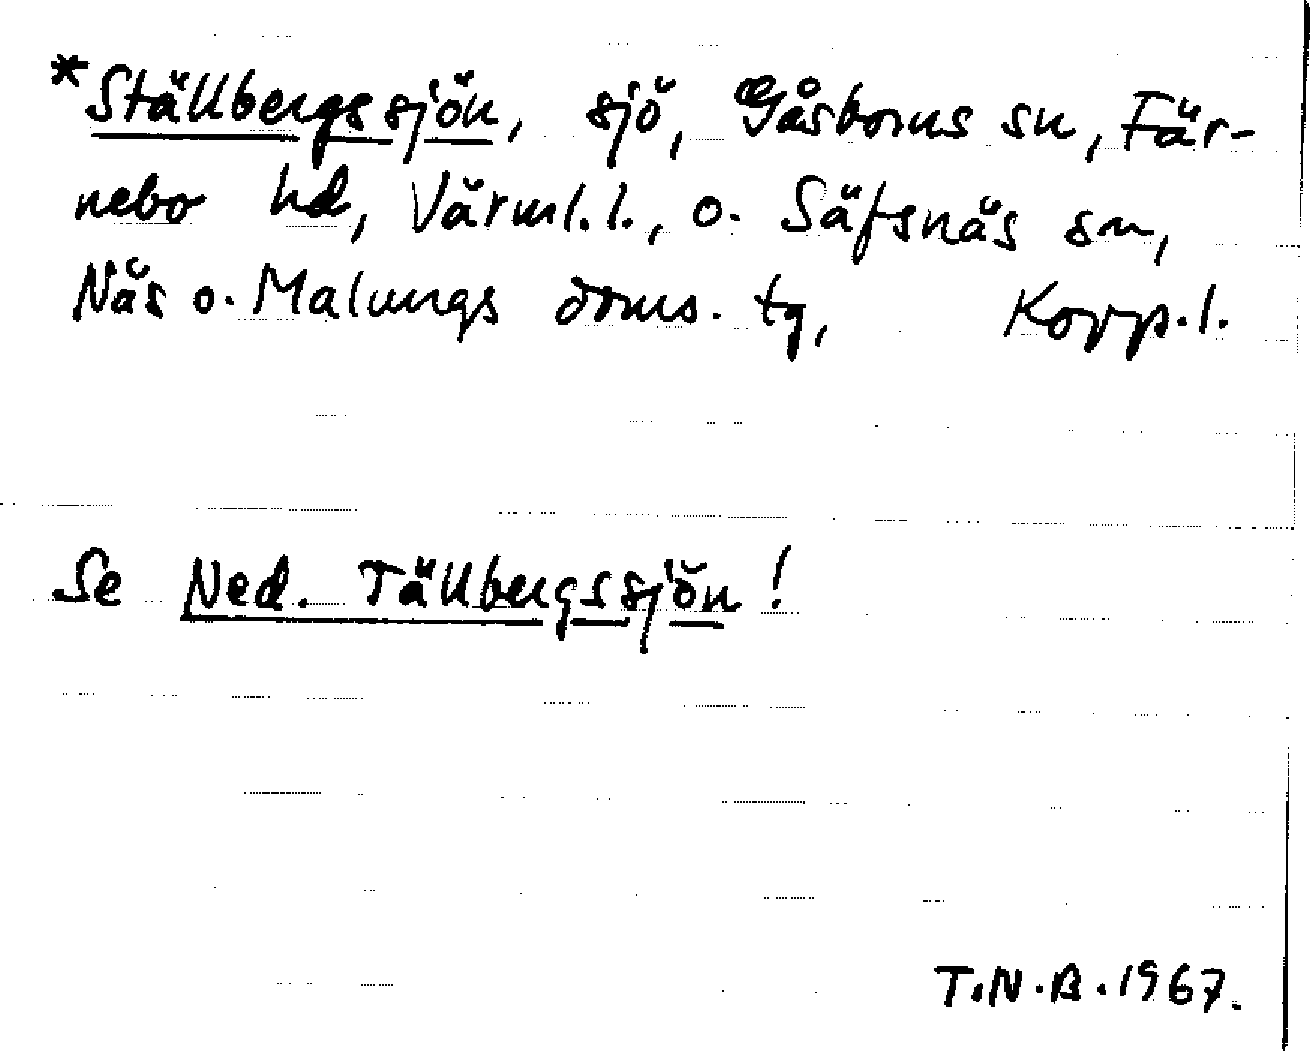 *Ställbergssjön, sjö, Gåsborns sn, Fär-
nebo hd, Värml. l., o. Säfsnäs sn,
Näs o. Malungs doms. tg, Kopp. l.
Se Ned. Tällbergssjön!
T.N.B. 1967.